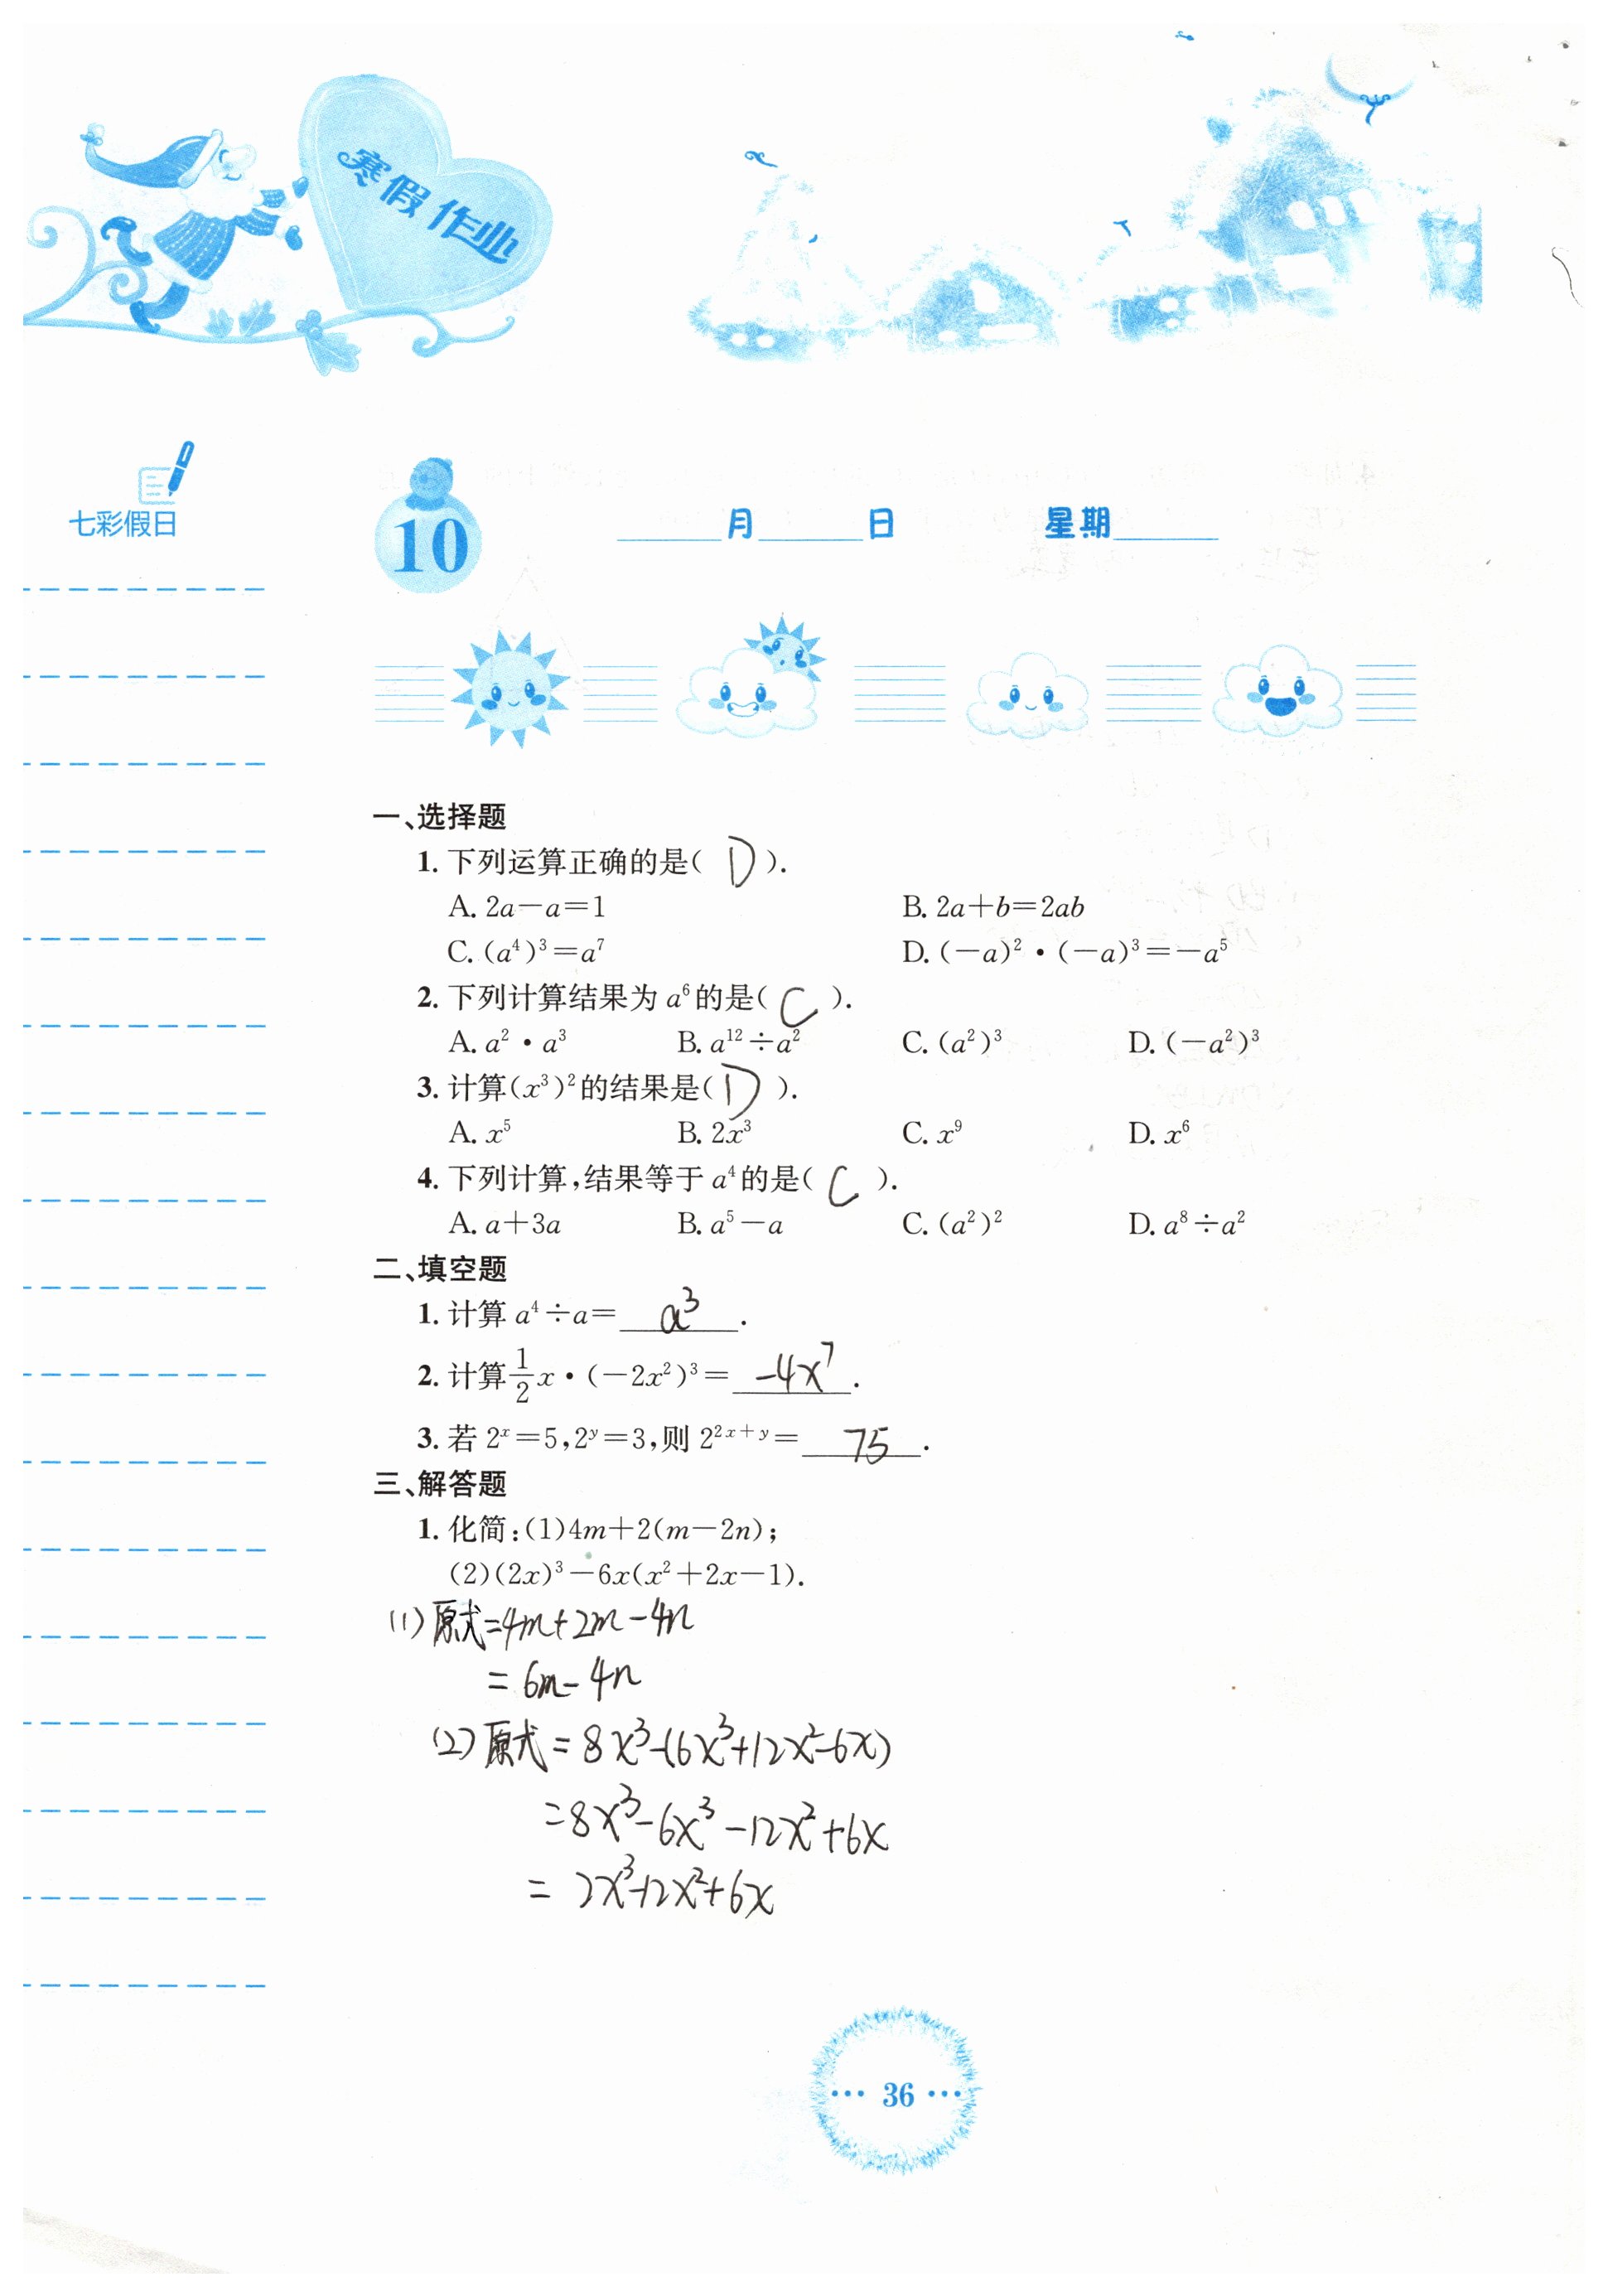 寒假作业
七彩假日
10 ______月______日 星期______
一、选择题
1. 下列运算正确的是( D ).
A. 2a－a＝1 B. 2a＋b＝2ab
C. (a⁴)³＝a⁷ D. (－a)²・(－a)³＝－a⁵
2. 下列计算结果为 a⁶ 的是( C ).
A. a²・a³ B. a¹²÷a² C. (a²)³ D. (－a²)³
3. 计算(x³)²的结果是( D ).
A. x⁵ B. 2x³ C. x⁹ D. x⁶
4. 下列计算,结果等于 a⁴ 的是( C ).
A. a＋3a B. a⁵－a C. (a²)² D. a⁸÷a²
二、填空题
1. 计算 a⁴÷a＝ a³ .
2. 计算 1/2 x・(－2x²)³＝ -4x⁷ .
3. 若 2ˣ＝5,2ʸ＝3,则 2²ˣ⁺ʸ＝ 75 .
三、解答题
1. 化简:(1)4m＋2(m－2n);
(2)(2x)³－6x(x²＋2x－1).
(1) 原式=4m+2m-4n
= 6m-4n
(2) 原式= 8x³-(6x³+12x²-6x)
=8x³-6x³-12x²+6x
= 2x³-12x²+6x
··· 36 ···